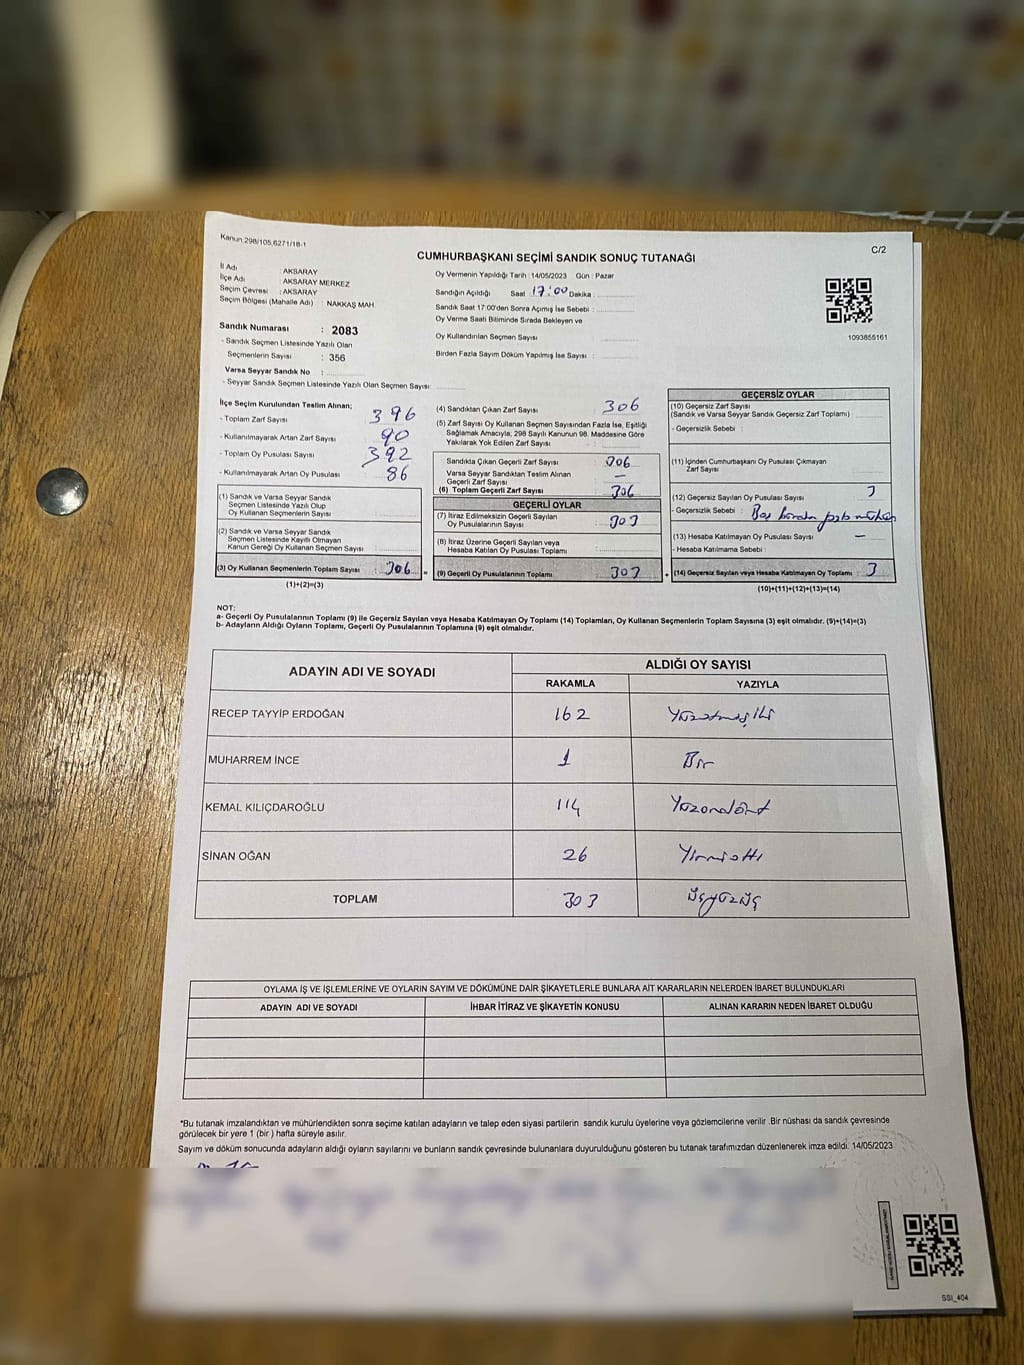 Kanun.298/105,6271/18-1
C/2
CUMHURBAŞKANI SEÇİMİ SANDIK SONUÇ TUTANAĞI
İl Adı : AKSARAY
İlçe Adı : AKSARAY MERKEZ
Seçim Çevresi : AKSARAY
Seçim Bölgesi (Mahalle Adı) : NAKKAŞ MAH.
Sandık Numarası : 2083
- Sandık Seçmen Listesinde Yazılı Olan
Seçmenlerin Sayısı : 356
Varsa Seyyar Sandık No :
- Seyyar Sandık Seçmen Listesinde Yazılı Olan Seçmen Sayısı:
Oy Vermenin Yapıldığı Tarih : 14/05/2023 Gün : Pazar
Sandığın Açıldığı Saat 17:00 Dakika :
Sandık Saat 17:00'den Sonra Açımış İse Sebebi :
Oy Verme Saati Bitiminde Sırada Bekleyen ve
Oy Kullandırılan Seçmen Sayısı
Birden Fazla Sayım Döküm Yapılmış İse Sayısı :
1093855161
İlçe Seçim Kurulundan Teslim Alınan;
- Toplam Zarf Sayısı 396
- Kullanılmayarak Artan Zarf Sayısı 90
- Toplam Oy Pusulası Sayısı 392
- Kullanılmayarak Artan Oy Pusulası 86
(1) Sandık ve Varsa Seyyar Sandık
Seçmen Listesinde Yazılı Olup
Oy Kullanan Seçmenlerin Sayısı
(2) Sandık ve Varsa Seyyar Sandık
Seçmen Listesinde Kayıtlı Olmayan
Kanun Gereği Oy Kullanan Seçmenlerin Sayısı
(3) Oy Kullanan Seçmenlerin Toplam Sayısı : 306
(1)+(2)=(3)
(4) Sandıktan Çıkan Zarf Sayısı 306
(5) Zarf Sayısı Oy Kullanan Seçmen Sayısından Fazla İse, Eşitliği
Sağlamak Amacıyla, 298 Sayılı Kanunun 98. Maddesine Göre
Yakılarak Yok Edilen Zarf Sayısı :
Sandıkta Çıkan Geçerli Zarf Sayısı : 306
Varsa Seyyar Sandıktan Teslim Alınan
Geçerli Zarf Sayısı : —
(6) Toplam Geçerli Zarf Sayısı 306
GEÇERLİ OYLAR
(7) İtiraz Edilmeksizin Geçerli Sayılan
Oy Pusulalarının Sayısı : 303
(8) İtiraz Üzerine Geçerli Sayılan veya
Hesaba Katılan Oy Pusulası Toplamı :
(9) Geçerli Oy Pusulalarının Toplamı 303
GEÇERSİZ OYLAR
(10) Geçersiz Zarf Sayısı
(Sandık ve Varsa Seyyar Sandık Geçersiz Zarf Toplamı) :
- Geçersizlik Sebebi :
(11) İçinden Cumhurbaşkanı Oy Pusulası Çıkmayan
Zarf Sayısı
(12) Geçersiz Sayılan Oy Pusulası Sayısı 3
- Geçersizlik Sebebi :
(13) Hesaba Katılmayan Oy Pusulası Sayısı : —
- Hesaba Katılmama Sebebi :
(14) Geçersiz Sayılan veya Hesaba Katılmayan Oy Toplamı : 3
(10)+(11)+(12)+(13)=(14)
NOT:
a- Geçerli Oy Pusulalarının Toplamı (9) ile Geçersiz Sayılan veya Hesaba Katılmayan Oy Toplamı (14) Toplamları, Oy Kullanan Seçmenlerin Toplam Sayısına (3) eşit olmalıdır. (9)+(14)=(3)
b- Adayların Aldığı Oyların Toplamı, Geçerli Oy Pusulalarının Toplamına (9) eşit olmalıdır.
ADAYIN ADI VE SOYADI ALDIĞI OY SAYISI
RAKAMLA YAZIYLA
RECEP TAYYİP ERDOĞAN 162 Yüzatmışiki
MUHARREM İNCE 1 Bir
KEMAL KILIÇDAROĞLU 114 Yüzondört
SİNAN OĞAN 26 Yirmialtı
TOPLAM 303 Üçyüzüç
OYLAMA İŞ VE İŞLEMLERİNE VE OYLARIN SAYIM VE DÖKÜMÜNE DAİR ŞİKAYETLERLE BUNLARA AİT KARARLARIN NELERDEN İBARET BULUNDUKLARI
ADAYIN ADI VE SOYADI İHBAR İTİRAZ VE ŞİKAYETİN KONUSU ALINAN KARARIN NEDEN İBARET OLDUĞU
*Bu tutanak imzalandıktan ve mühürlendikten sonra seçime katılan adayların ve talep eden siyasi partilerin sandık kurulu üyelerine veya gözlemcilerine verilir .Bir nüshası da sandık çevresinde
görülecek bir yere 1 (bir ) hafta süreyle asılır.
Sayım ve döküm sonucunda adayların aldığı oyların sayılarını ve bunların sandık çevresinde bulunanlara duyurulduğunu gösteren bu tutanak tarafımızdan düzenlenerek imza edildi. 14/05/2023
SSI_404